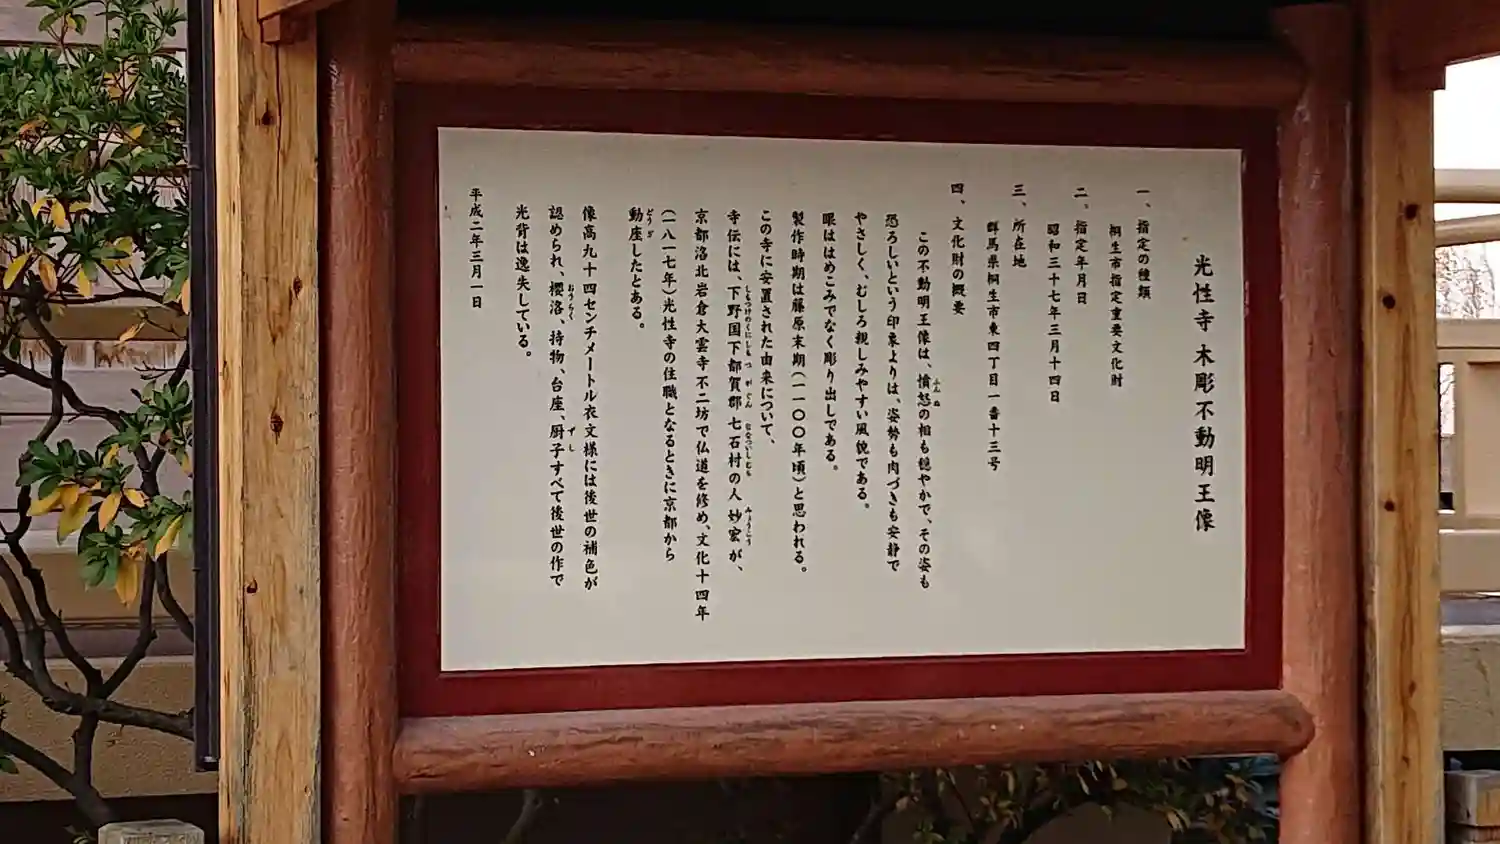 光性寺 木彫不動明王像
一、指定の種類
桐生市指定重要文化財
二、指定年月日
昭和三十七年三月十四日
三、所在地
群馬県桐生市東四丁目一番十三号
四、文化財の概要
この不動明王像は、憤怒の相も穏やかで、その姿も
ふんぬ
恐ろしいという印象よりは、姿勢も肉づきも安静で
やさしく、むしろ親しみやすい風貌である。
眼ははめこみでなく彫り出しである。
製作時期は藤原末期(一一〇〇年頃)と思われる。
この寺に安置された由来について、
寺伝には、下野国下都賀郡七石村の人 妙宏が、
しもつけのくにしもつがぐん ななついしむら みょうこう
京都洛北岩倉大雲寺不二坊で仏道を修め、文化十四年
(一八一七年)光性寺の住職となるときに京都から
動座したとある。
どうざ
像高九十四センチメートル衣文様には後世の補色が
認められ、櫻洛、持物、台座、厨子すべて後世の作で
おうらく ずし
光背は逸失している。
平成二年三月一日